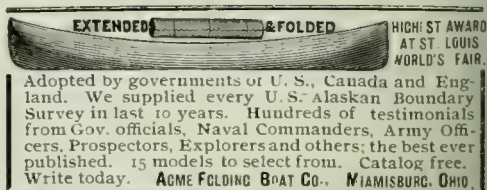 EXTENDED & FOLDED
HIGHEST AWARD
AT ST. LOUIS
WORLD'S FAIR.
Adopted by governments of U. S., Canada and Eng-
land. We supplied every U. S. Alaskan Boundary
Survey in last 10 years. Hundreds of testimonials
from Gov. officials, Naval Commanders, Army Offi-
cers, Prospectors, Explorers and others; the best ever
published. 15 models to select from. Catalog free.
Write today. ACME FOLDING BOAT CO., MIAMISBURG, OHIO